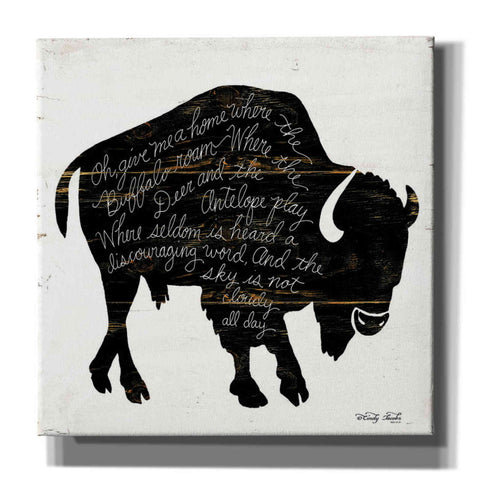 Oh, give me a home where the
Buffalo roam Where the
Deer and the
Antelope play
Where seldom is heard a
discouraging word, And the
sky is not
cloudy
all day
©Cindy Jacobs